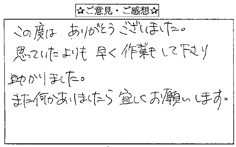 ☆ご意見・ご感想☆
この度は ありがとうございました。
思っていたよりも 早く 作業をして下さり
助かりました。
また何かありましたら 宜しくお願いします。